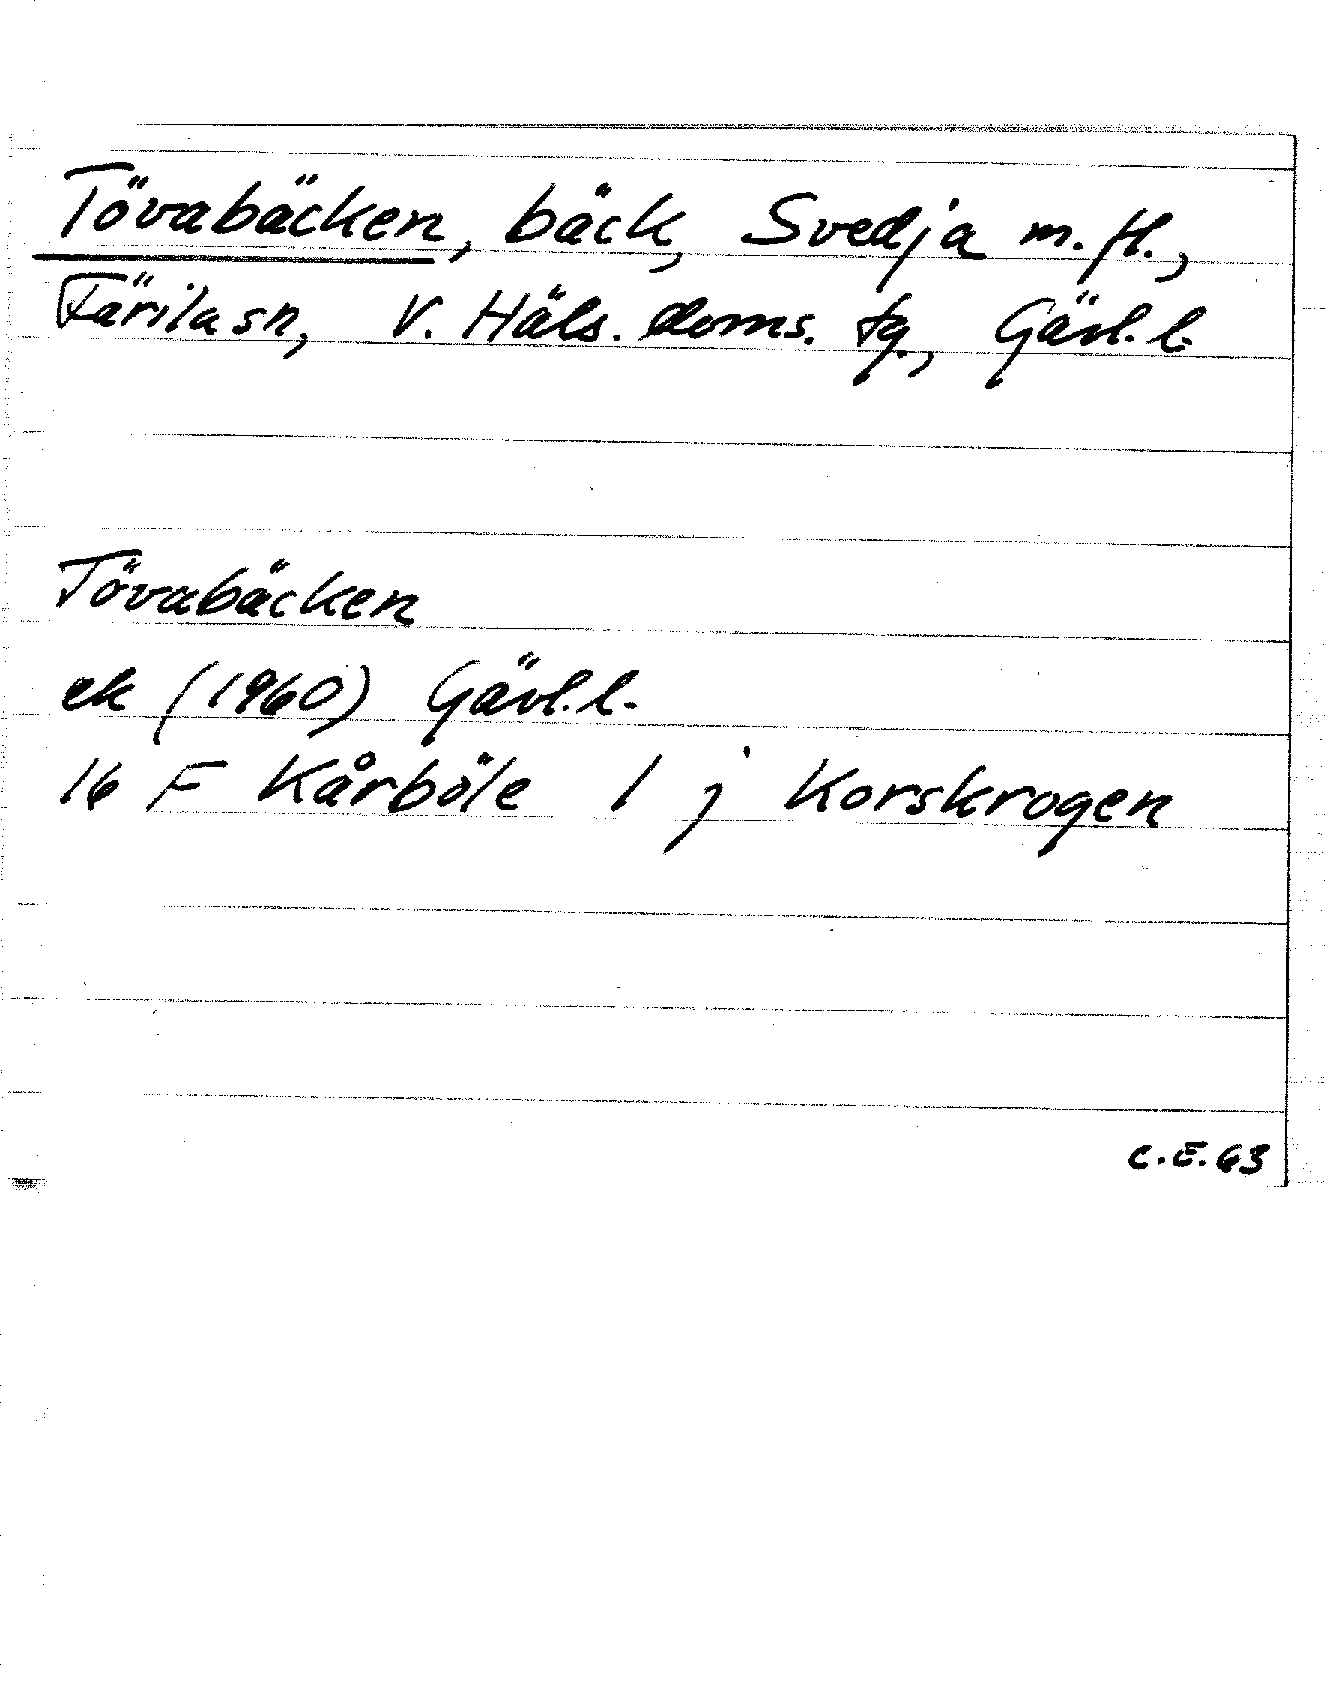 Tövabäcken, bäck, Svedja m.fl.,
Färila sn, V. Häls. doms. tg., Gävl. l.
Tövabäcken
ek (1960) Gävl. l.
16 F Kårböle 1 j Korskrogen
C.E. 63